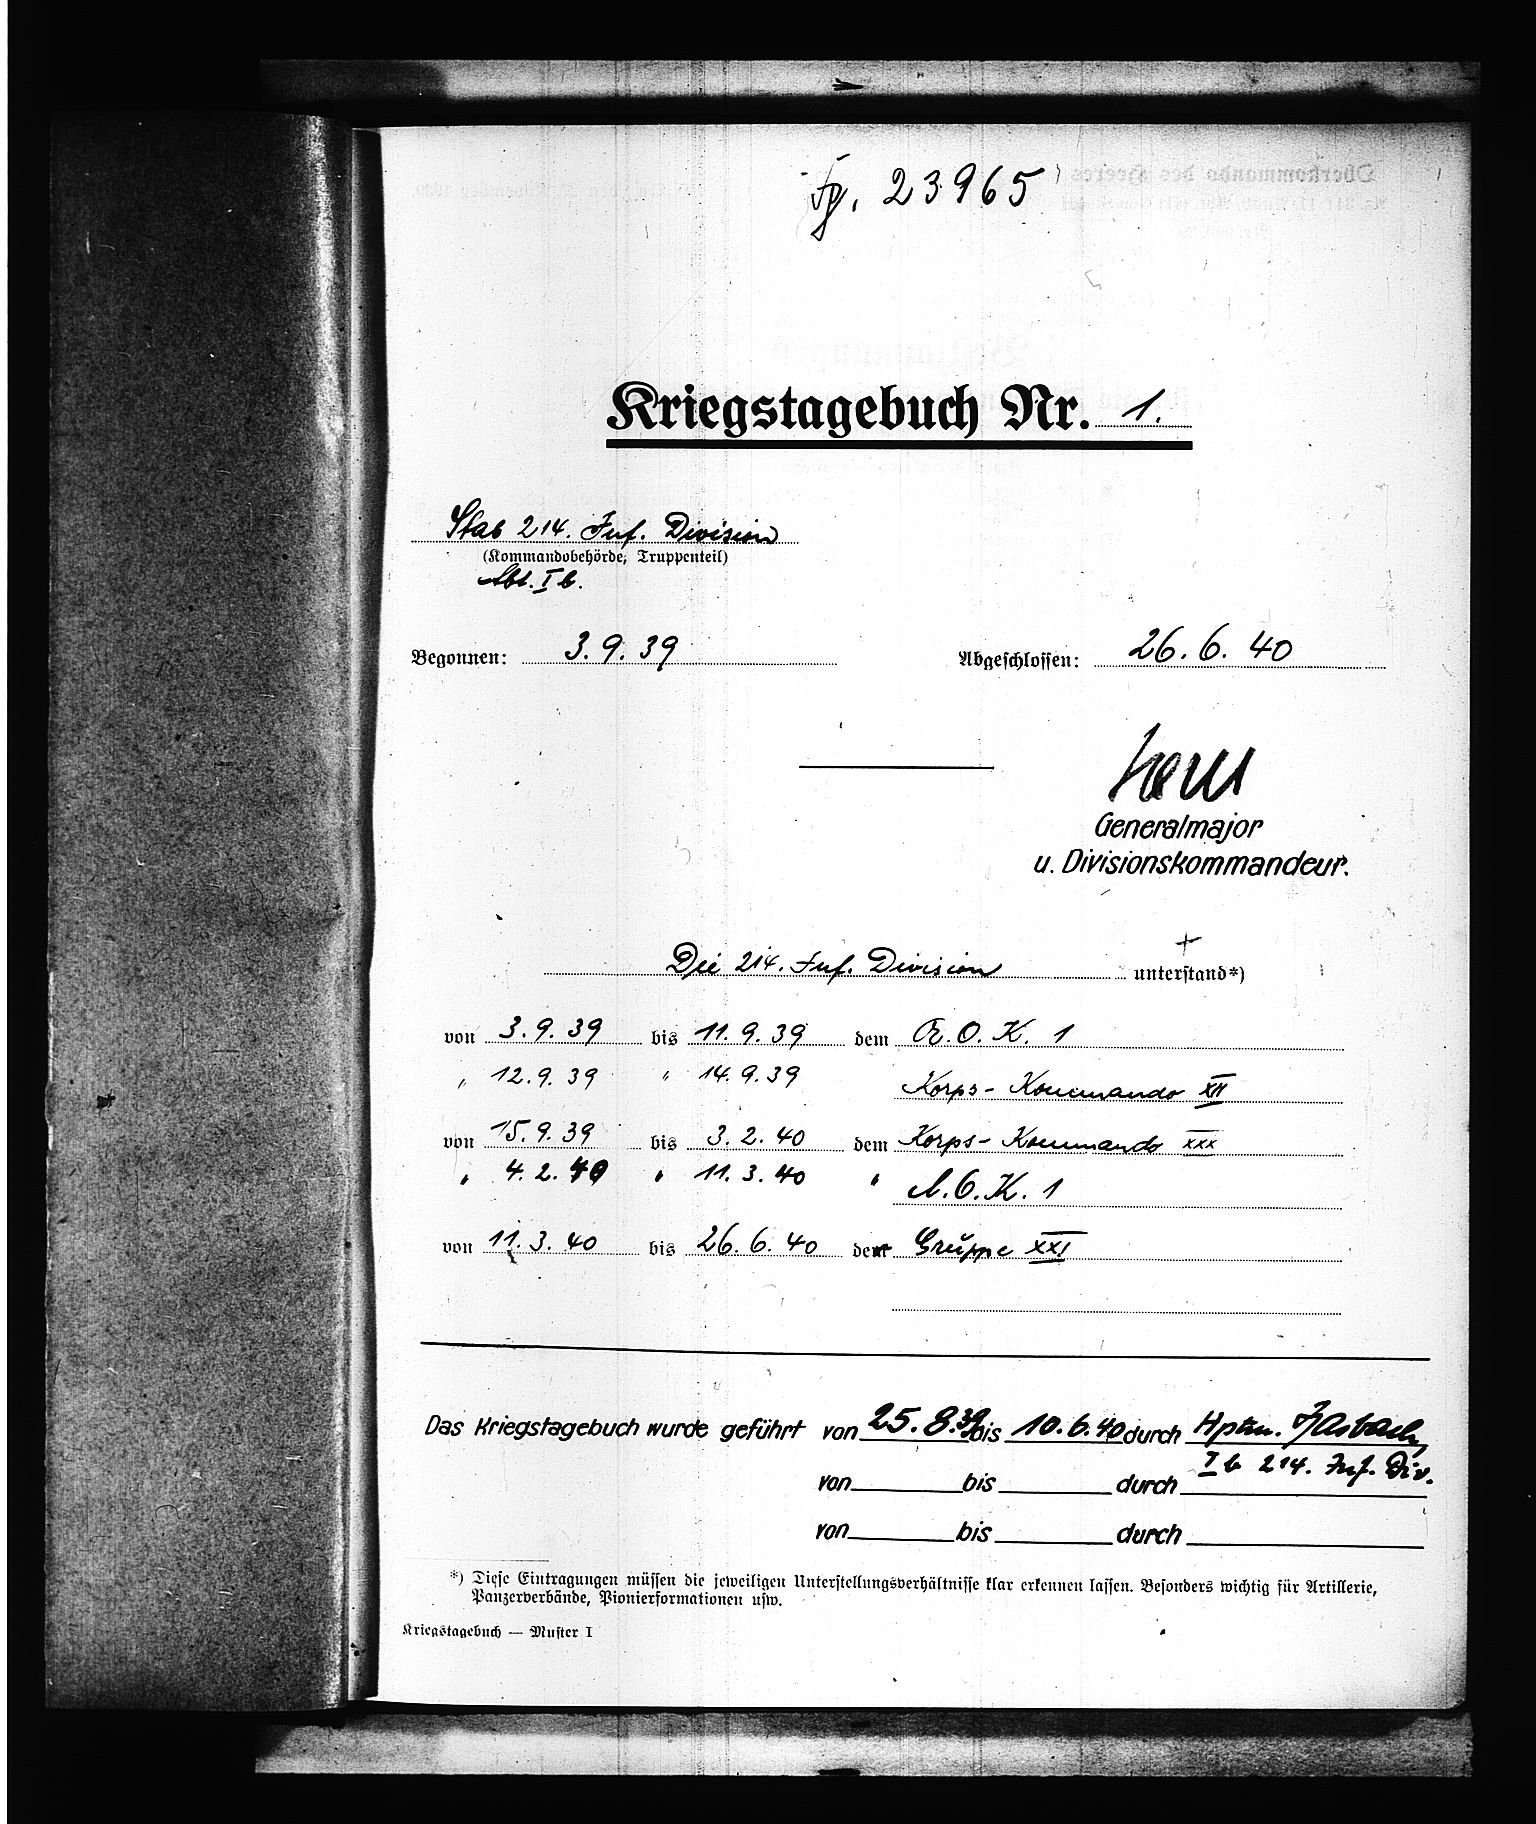 Fg. 23965
Kriegstagebuch Nr. 1.
Stab 214. Inf. Division
(Kommandobehörde, Truppenteil)
Abt. I b.
Begonnen: 3.9.39 Abgeschlossen: 26.6.40
Generalmajor
u. Divisionskommandeur.
Die 214. Inf. Division unterstand*)
von 3.9.39 bis 11.9.39 dem A.O.K. 1
" 12.9.39 " 14.9.39 Korps-Kommando XII
von 15.9.39 bis 3.2.40 dem Korps-Kommando XXX
" 4.2.40 " 11.3.40 " A.O.K. 1
von 11.3.40 bis 26.6.40 der Gruppe XXI
Das Kriegstagebuch wurde geführt von 25.8.39 bis 10.6.40 durch Hptm.
I b 214. Inf. Div.
von bis durch
von bis durch
*) Diese Eintragungen müssen die jeweiligen Unterstellungsverhältnisse klar erkennen lassen. Besonders wichtig für Artillerie,
Panzerverbände, Pionierformationen usw.
Kriegstagebuch — Muster I